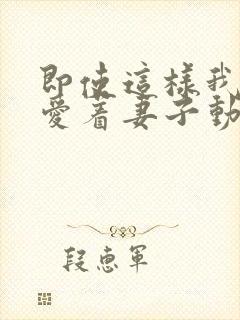 即使這樣我
愛着妻子動
段惠軍